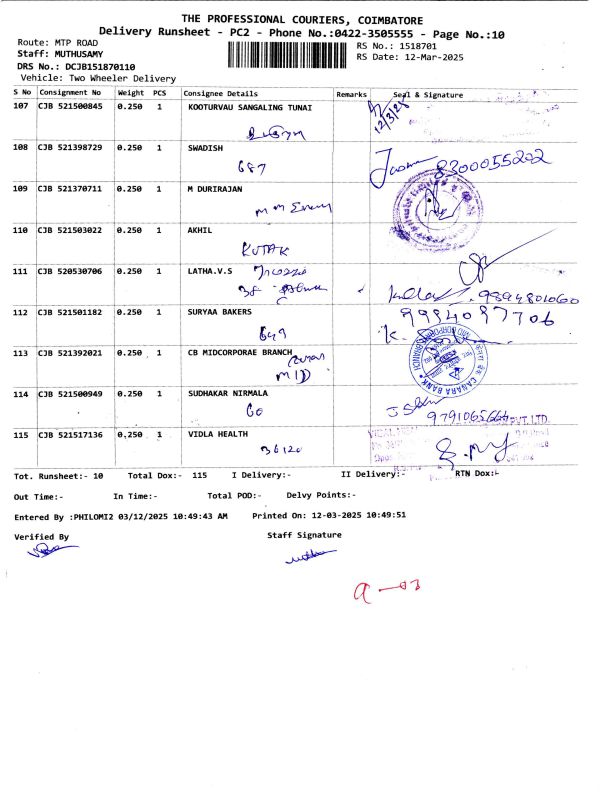 THE PROFESSIONAL COURIERS, COIMBATORE
Delivery Runsheet - PC2 - Phone No.:0422-3505555 - Page No.:10
Route: MTP ROAD
Staff: MUTHUSAMY
DRS No.: DCJB151870110
Vehicle: Two Wheeler Delivery
RS No.: 1518701
RS Date: 12-Mar-2025
S No Consignment No Weight PCS Consignee Details Remarks Seal & Signature
107 CJB 521500845 0.250 1 KOOTURVAU SANGALING TUNAI
12/3/25
108 CJB 521398729 0.250 1 SWADISH
687 8300055202
109 CJB 521370711 0.250 1 M DURIRAJAN
110 CJB 521503022 0.250 1 AKHIL
KUTAK
111 CJB 520530706 0.250 1 LATHA.V.S
38 9894801060
112 CJB 521501182 0.250 1 SURYAA BAKERS 9994097706
649 K.
113 CJB 521392021 0.250 1 CB MIDCORPORAE BRANCH
MID
CANARA BANK
114 CJB 521500949 0.250 1 SUDHAKAR NIRMALA
60 9791065666
PVT. LTD.
115 CJB 521517136 0.250 1 VIDLA HEALTH
36120
Tot. Runsheet:- 10 Total Dox:- 115 I Delivery:- II Delivery:- RTN Dox:-
Out Time:- In Time:- Total POD:- Delvy Points:-
Entered By :PHILOMI2 03/12/2025 10:49:43 AM Printed On: 12-03-2025 10:49:51
Verified By Staff Signature
a-03